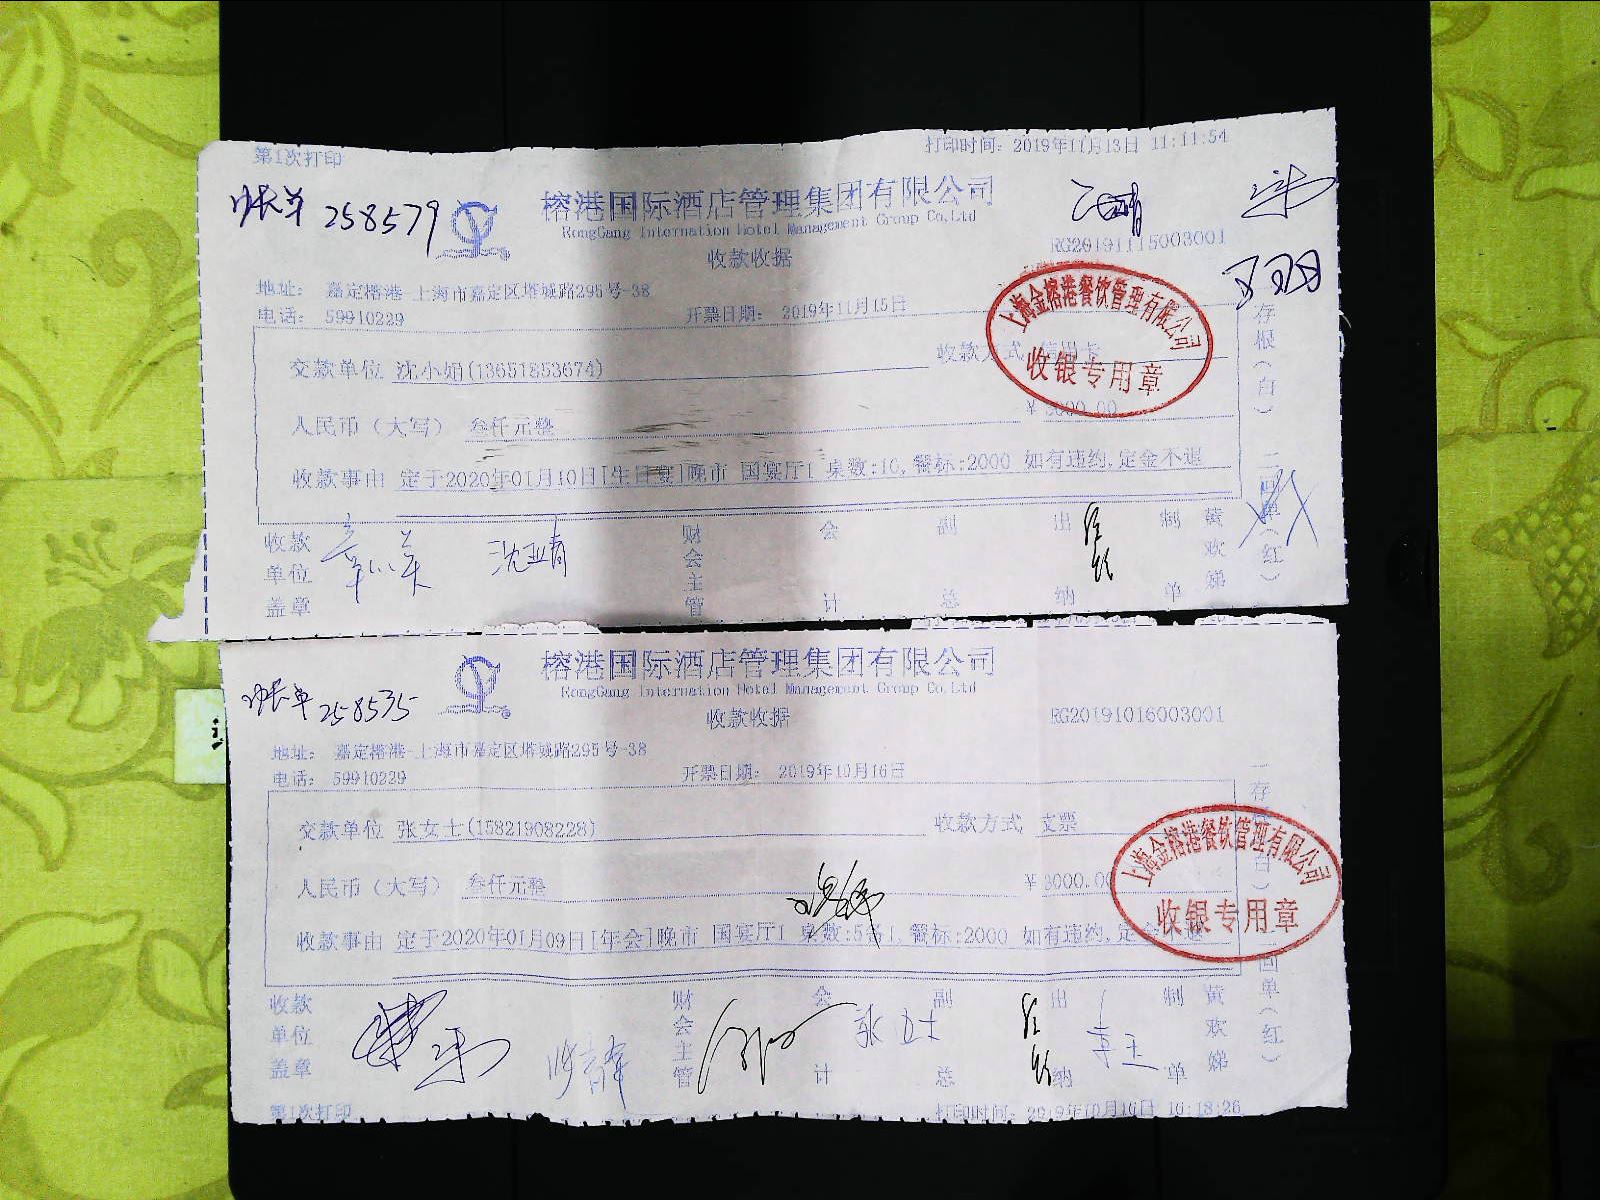 第1次打印
打印时间: 2019年11月13日 11:11:54
258579
榕港国际酒店管理集团有限公司
RongGang Internation Hotel Management Group Co,Ltd
收款收据
RG20191115003001
地址: 嘉定榕港-上海市嘉定区塔城路295号-38
电话: 59910229
开票日期: 2019年11月15日
上海金榕港餐饮管理有限公司
收银专用章
交款单位 沈小姐(13651853674)
收款方式 信用卡
人民币(大写) 叁仟元整
¥ 3000.00
收款事由 定于2020年01月10日[生日宴]晚市 国宴厅1 桌数:10,餐标:2000 如有违约,定金不退
收款单位盖章
沈亚青
财会主管
会计
副总
出纳
制单
黄欢娣
存根(白) 二回单(红)
258535
榕港国际酒店管理集团有限公司
RongGang Internation Hotel Management Group Co,Ltd
收款收据
RG20191016003001
地址: 嘉定榕港-上海市嘉定区塔城路295号-38
电话: 59910229
开票日期: 2019年10月16日
交款单位 张女士(15821908228)
收款方式 支票
上海金榕港餐饮管理有限公司
收银专用章
人民币(大写) 叁仟元整
¥ 3000.00
收款事由 定于2020年01月09日[年会]晚市 国宴厅1 桌数:5备1,餐标:2000 如有违约,定金不退
收款单位盖章
财会主管
会计
张女士
副总
出纳
制单
黄欢娣
一存根(白) 二回单(红)
第1次打印
打印时间: 2019年10月16日 16:18:26